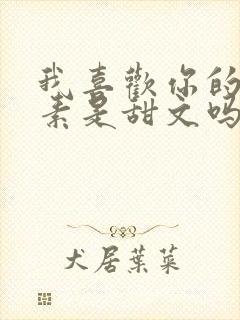 我喜歡你的
素是甜文吗
犬居葉菜